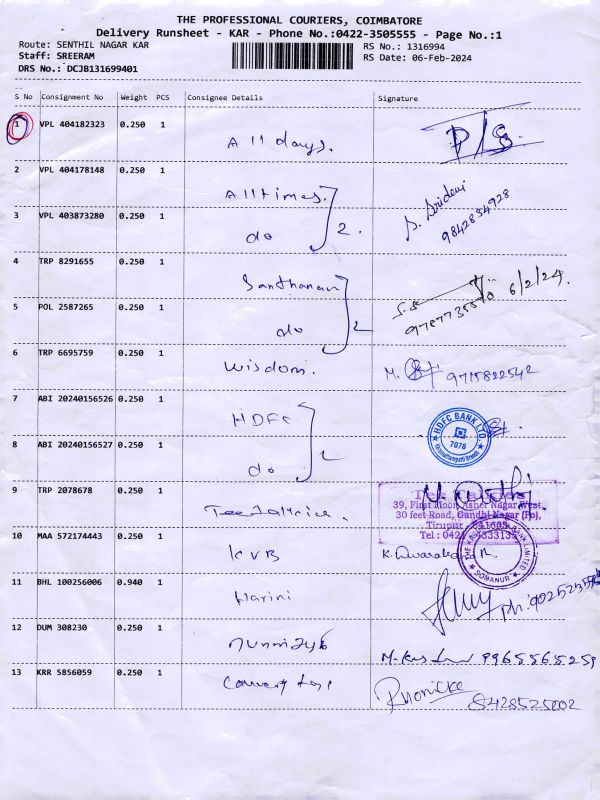 THE PROFESSIONAL COURIERS, COIMBATORE
Delivery Runsheet - KAR - Phone No.:0422-3505555 - Page No.:1
Route: SENTHIL NAGAR KAR
RS No.: 1316994
Staff: SREERAM
RS Date: 06-Feb-2024
DRS No.: DCJB131699401
S No Consignment No Weight PCS Consignee Details Signature
1 VPL 404182323 0.250 1 All days.
2 VPL 404178148 0.250 1 All times.
3 VPL 403873280 0.250 1 do 2. S. Sridevi 9842834928
4 TRP 8291655 0.250 1 Santhanan 6/2/24.
5 POL 2587265 0.250 1 do 2
6 TRP 6695759 0.250 1 Wisdom. M. 9715822542
7 ABI 20240156526 0.250 1 HDFC HDFC BANK LTD. 7078
8 ABI 20240156527 0.250 1 do 2
9 TRP 2078678 0.250 1
39, First Floor, Asher Nagar West,
30 feet Road, Gandhi Nagar (Po),
Tirupur
Tel : 0421 4333135
10 MAA 572174443 0.250 1 KVB BANK LIMITED SOMANUR
11 BHL 100256006 0.940 1 Harini
12 DUM 308230 0.250 1 9965565259
13 KRR 5856059 0.250 1 8428525002